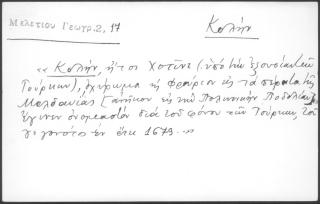 Μελετίου Γεωγρ. 2, 17
Κολήν
«Κολήν, ἤτοι Χοτῖνι (ὑπὸ τὴν ἐξουσίαν τῶν
Τούρκων), ὀχύρωμα ἢ φρούριον εἰς τὰ πέρατα τῆς
Μολδαυίας [ἀνῆκον εἰς τὴν Πολωνικὴν Ποδολίαν],
ἔγινεν ὀνομαστὸν διὰ τοῦ φόνου τῶν Τούρκων, τοῦ
γεγονότος ἐν ἔτει 1673...»